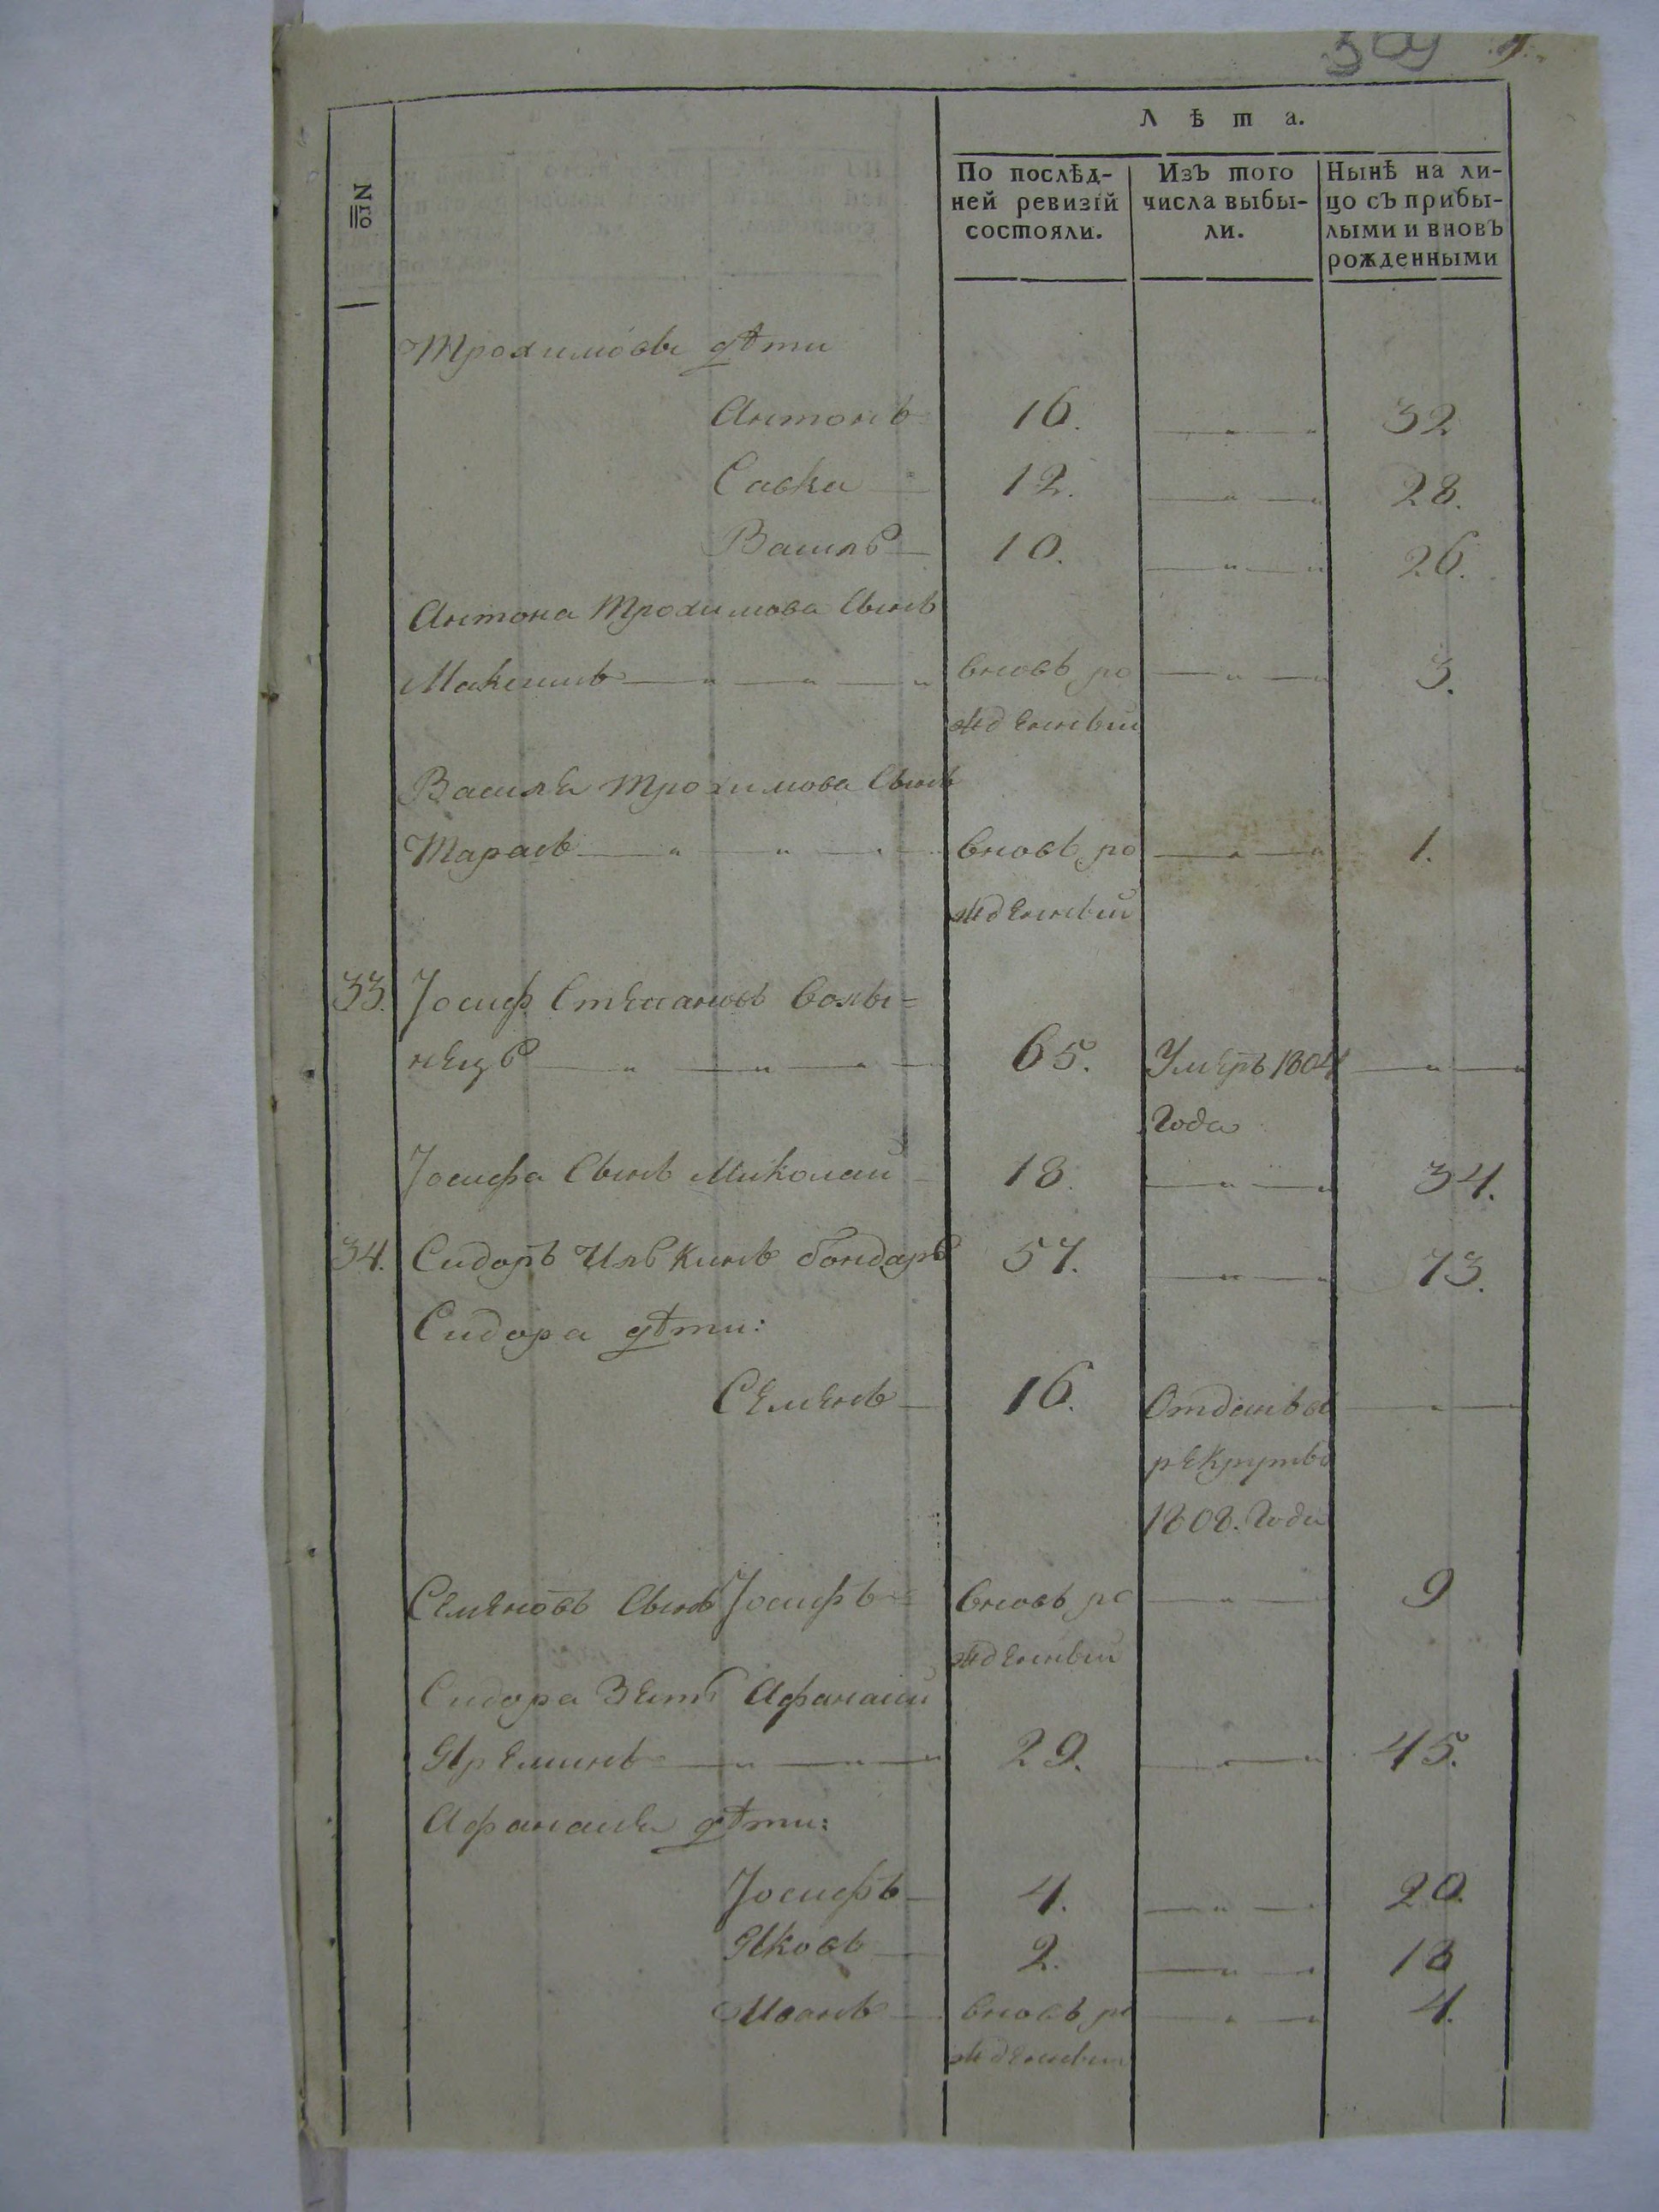 309
Лѣта.
№
По послѣд-
ней ревизїй
состояли.
Изъ того
числа выбы-
ли.
Нынѣ на ли-
цо съ прибы-
лыми и вновь
рожденными
Трохимовы дѣти
Антонъ 16. 32
Савка 12. 28.
Василь 10. 26.
Антона Трохимова Сынъ
Максимъ вновь ро 3.
жденный
Василя Трохимова Сынъ
Тарасъ вновь ро 1.
жденный
33. Іосиф Степановъ волы=
нецъ 65. Умеръ 1804
Года
Іосифа Сынъ Миколай 18. 34.
34. Сидоръ Илькинъ бондарь 57. 73.
Сидора дѣти:
Семенъ 16. Отданъ въ
рекруты
1808. Года
Семеновъ Сынъ Іосифъ вновь ро 9
жденный
Сидора Зять Афанасий
Яреминъ 29. 45.
Афанасия дѣти:
Іосифъ 4. 20.
Яковъ 2. 18
Иванъ вновь ро 4.
жденный